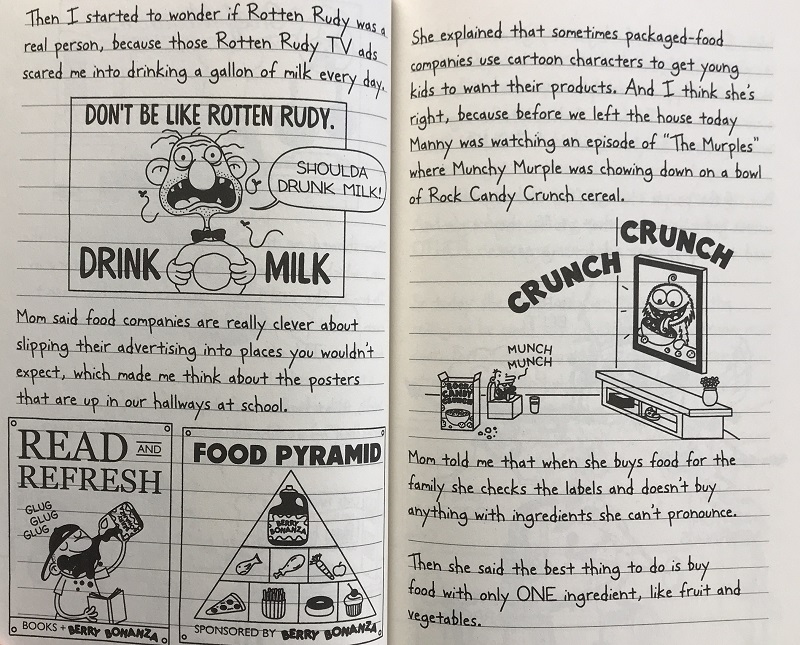 Then I started to wonder if Rotten Rudy was a
real person, because those Rotten Rudy TV ads
scared me into drinking a gallon of milk every day.
DON'T BE LIKE ROTTEN RUDY.
SHOULDA
DRUNK MILK!
DRINK MILK
Mom said food companies are really clever about
slipping their advertising into places you wouldn't
expect, which made me think about the posters
that are up in our hallways at school.
READ AND
REFRESH
GLUG
GLUG
GLUG
BOOKS + BERRY BONANZA
FOOD PYRAMID
BERRY
BONANZA
SPONSORED BY BERRY BONANZA
She explained that sometimes packaged-food
companies use cartoon characters to get young
kids to want their products. And I think she's
right, because before we left the house today
Manny was watching an episode of "The Murples"
where Munchy Murple was chowing down on a bowl
of Rock Candy Crunch cereal.
CRUNCH
CRUNCH
MUNCH
MUNCH
ROCK
CANDY
CRUNCH
Mom told me that when she buys food for the
family she checks the labels and doesn't buy
anything with ingredients she can't pronounce.
Then she said the best thing to do is buy
food with only ONE ingredient, like fruit and
vegetables.